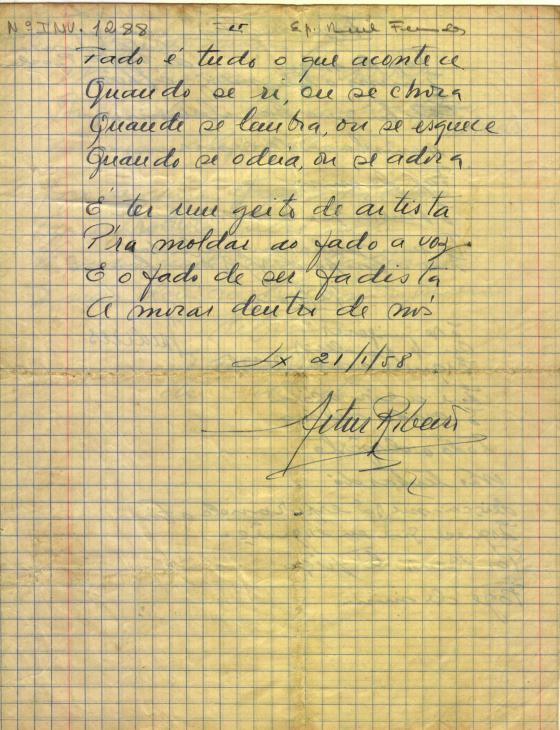 Nº INV. 1288
Fado é tudo o que acontece
Quando se ri, ou se chora
Quando se lembra, ou se esquece
Quando se odeia, ou se adora
É ter um geito de artista
P'ra moldar ao fado a voz.
E o fado de ser fadista
A morar dentro de nós
Lx 21/1/58
Artur Ribeiro